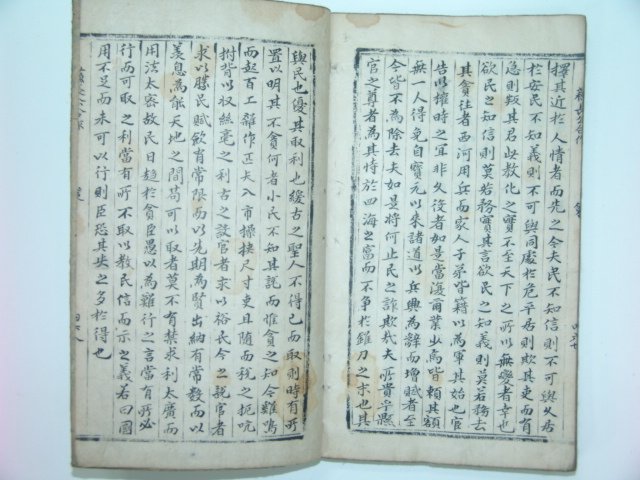 擇其近於人情者而先之今夫民不知信則不可與久居
於安民不知義則不可與同處於危平居則欺其吏而有
急則叛其君此教化之實不至天下之所以無變者幸也
欲民之知信則莫若務實其言欲民之知義則莫若務去
其貪往者西河用兵而家人子弟皆籍以為軍其始也官
告以權時之宜非久役者如是當復爾業少焉皆其額
無一人得免自寶元以來諸道以兵興為辭而增賦者至
今皆不為除去夫如是將何止民之詐欺哉夫所貴乎縣
官之尊者為其恃於四海之富而不爭於錐刀之求也其
與民也優其取利也緩古之聖人不得已而取則時有所
置以明其不貪何者小民不知其說而惟貪之知今雞鳴
而起百工雜作匹夫入市操挾尺寸吏且隨而稅之扼吭
拊背以收絲毫之利古之設官者求以裕民今之設官者
求以勝民賦斂有常限而以先期為賢出納有常數而以
羨息為能天地之間苟可以取者莫不有禁求利太廣而
用法太密故民日趨於貪臣愚以為難行之言當有所必
行而可取之利當有所不取以教民信而示之義若曰國
用不足而未可以行則臣恐其失之多於得也